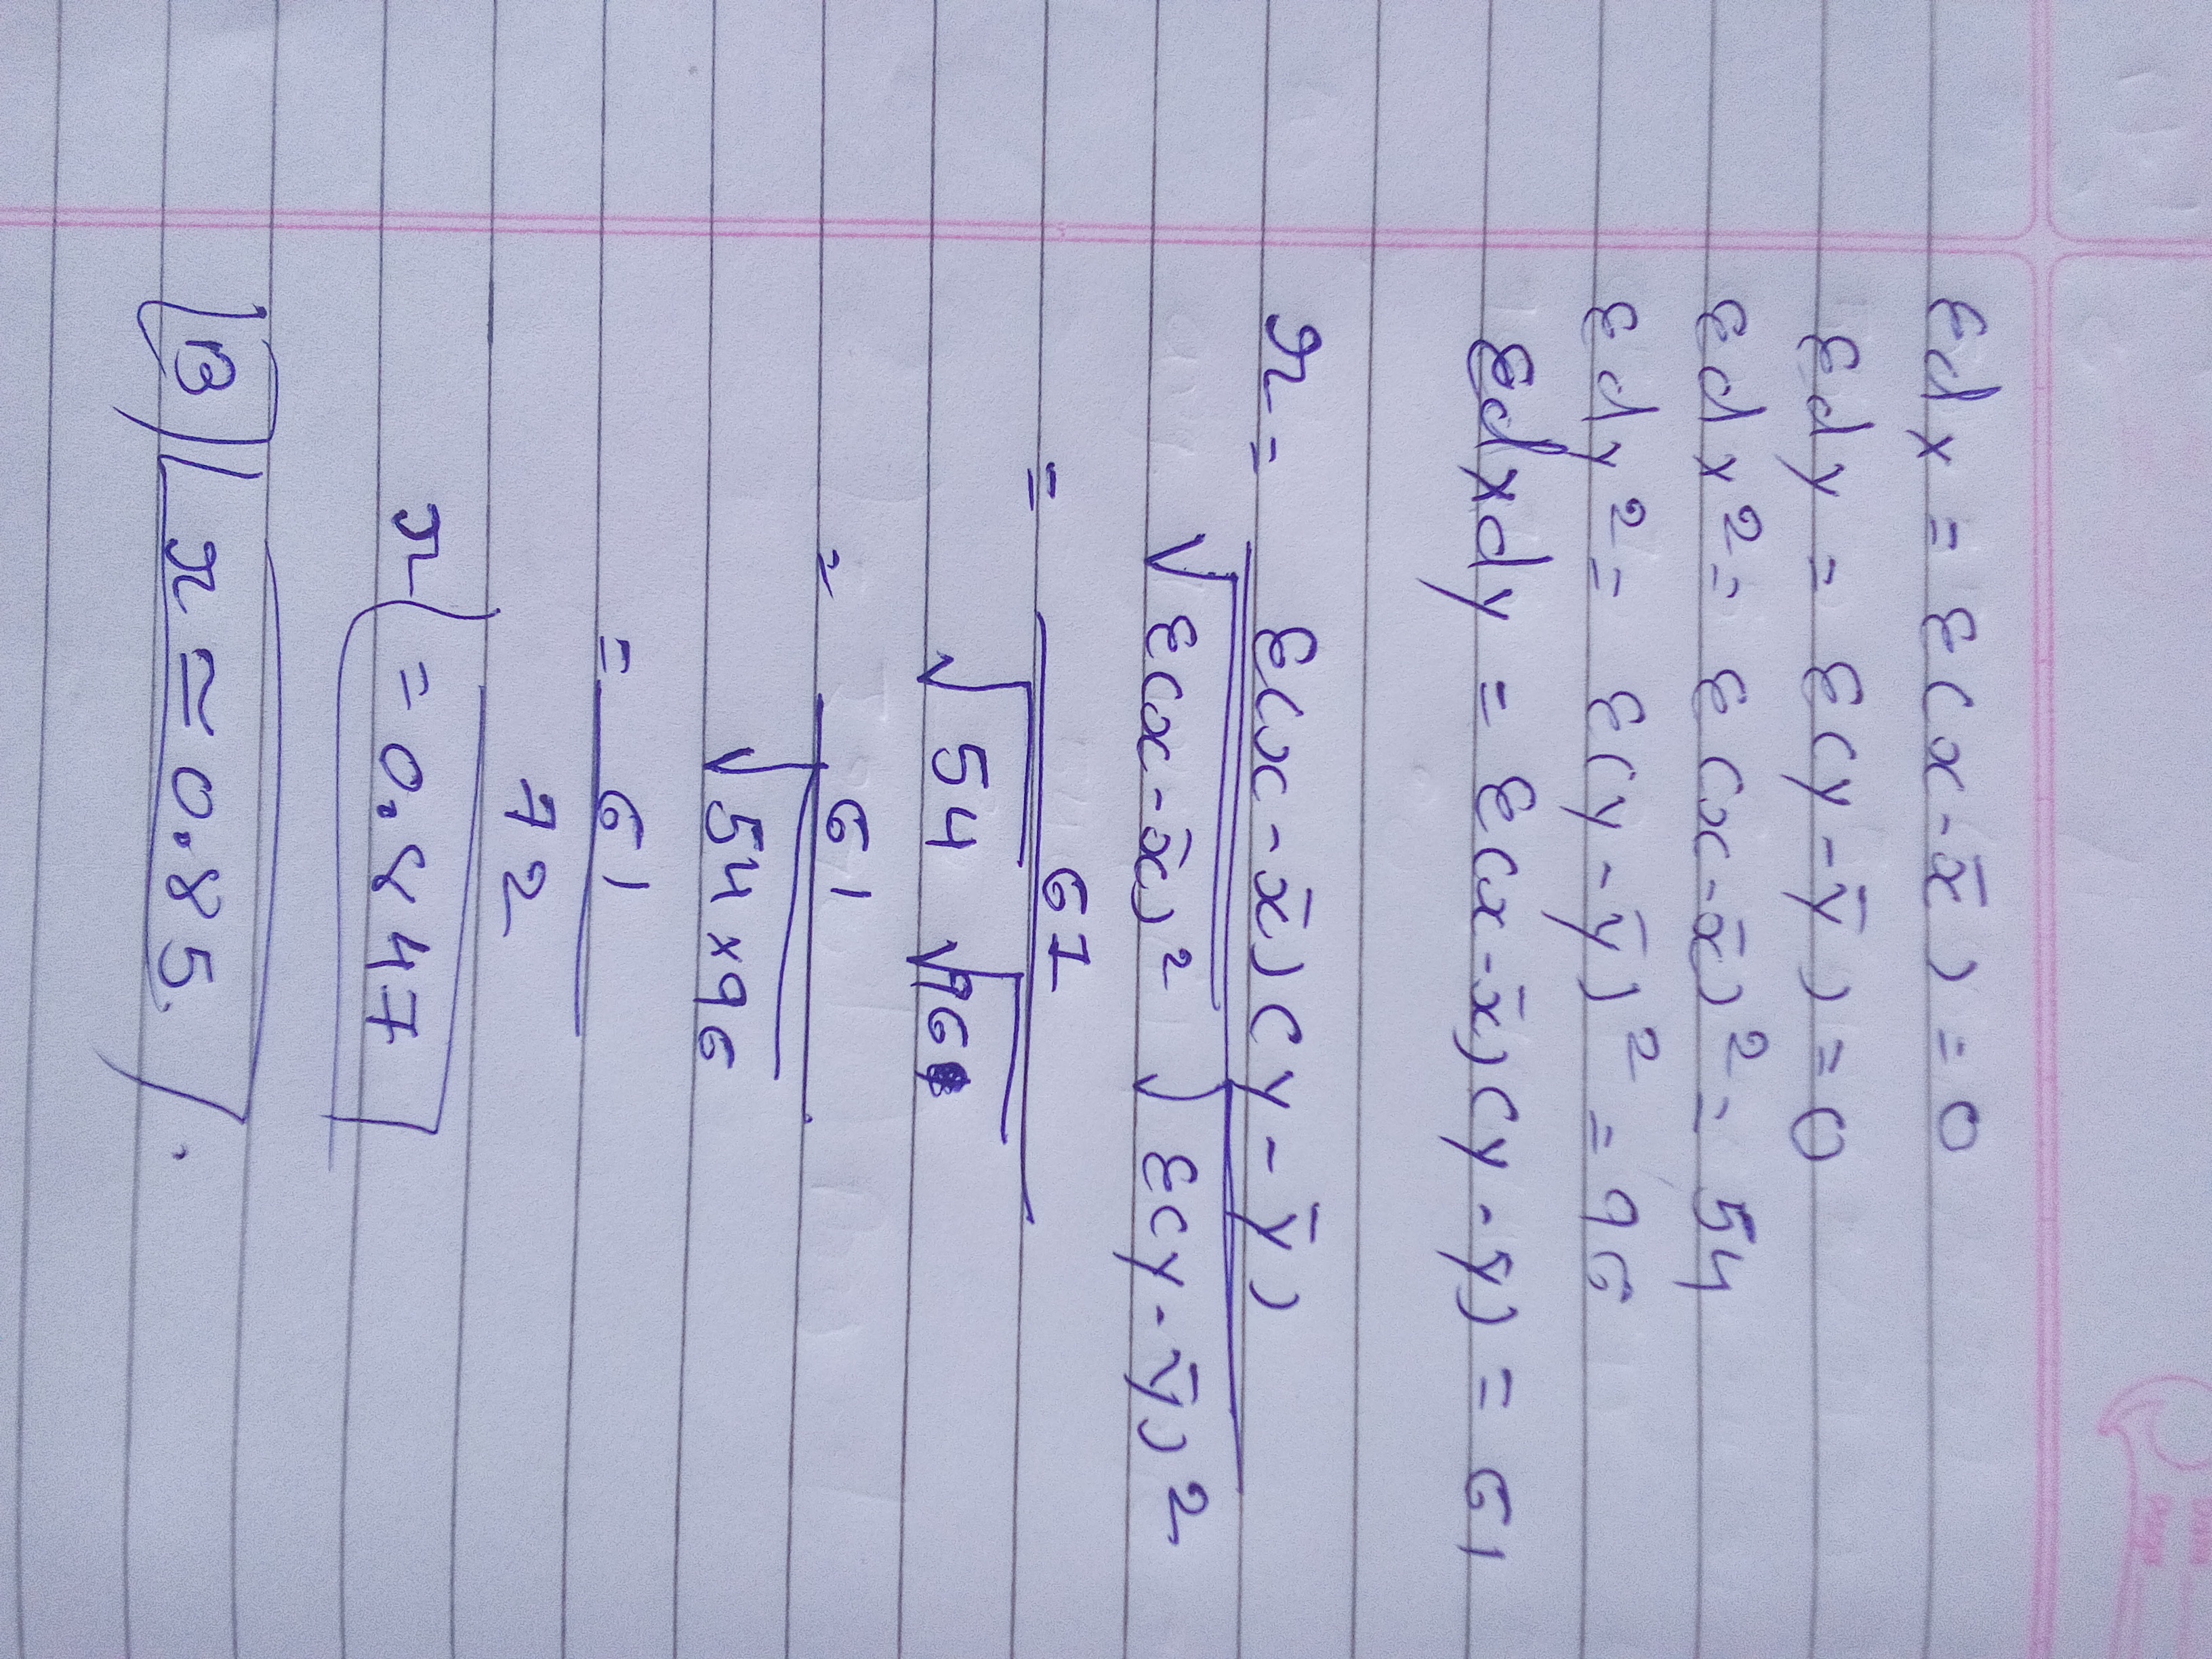 εdx = ε(x - x̄) = 0
εdy = ε(y - ȳ) = 0
εdx² = ε(x - x̄)² = 54
εdy² = ε(y - ȳ)² = 96
εdxdy = ε(x - x̄)(y - ȳ) = 61
r = ε(x - x̄)(y - ȳ)
√ε(x - x̄)² √ε(y - ȳ)²
= 61
√54 √96
= 61
√54 × 96
= 61
72
r = 0.847
B) r = 0.85.